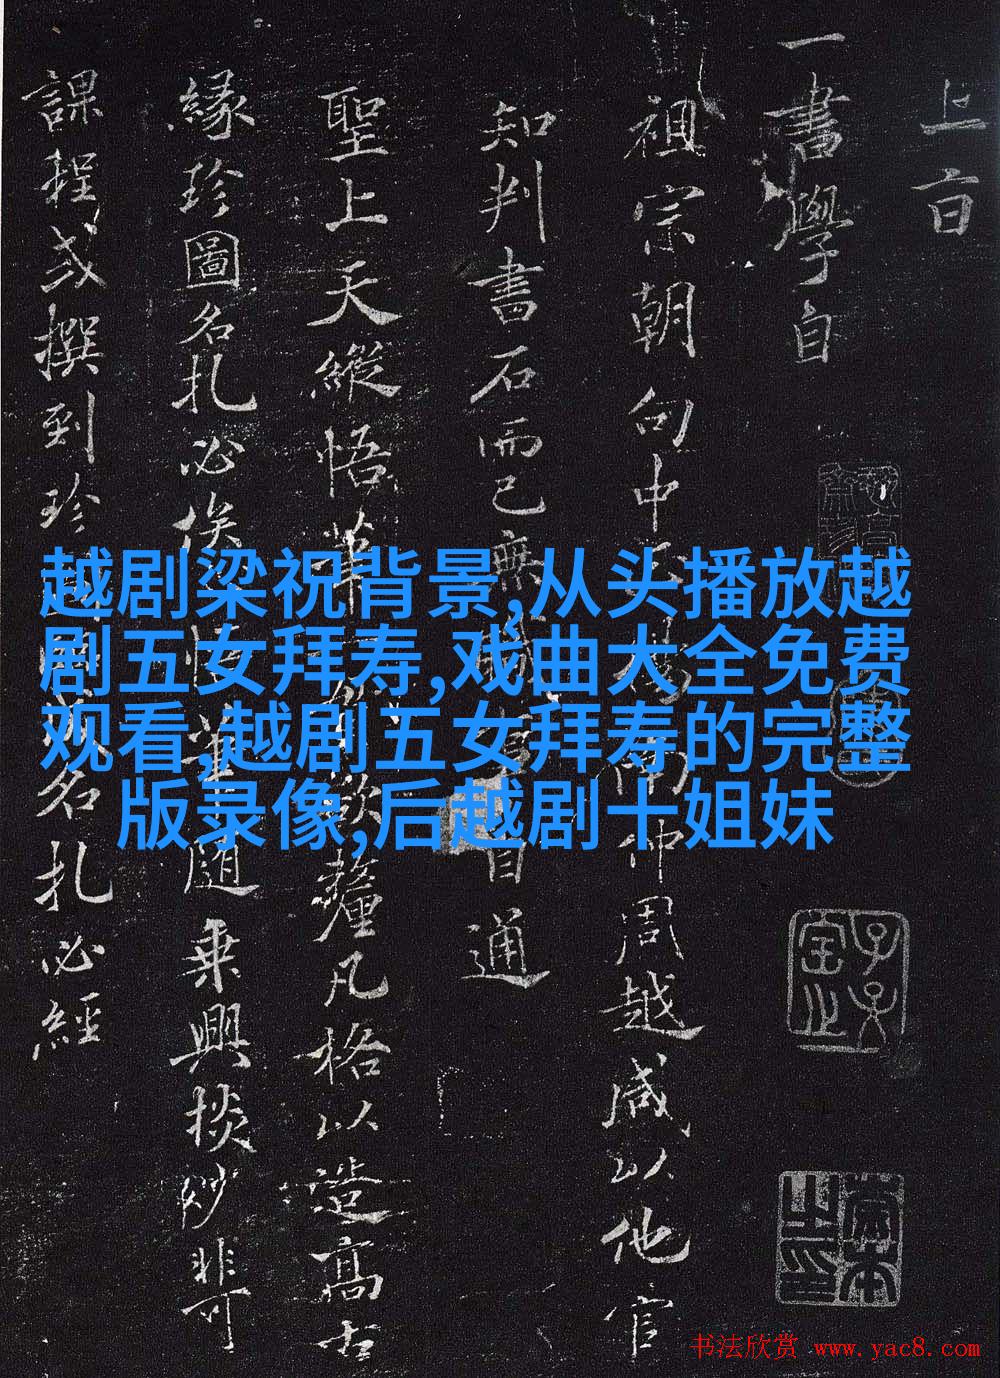 上旨
一書學自
祖宗朝
向中
南仲周越咸以他官
知判書石而已無
自通
聖上天縱悟
凡格以造高古
縁珍圖名札必俟
隨乗興掞妙非可
課程或撰到珍
名札必經
越剧梁祝背景,从头播放越
剧五女拜寿,戏曲大全免费
观看,越剧五女拜寿的完整
版录像,后越剧十姐妹
书法欣赏 www.yac8.com